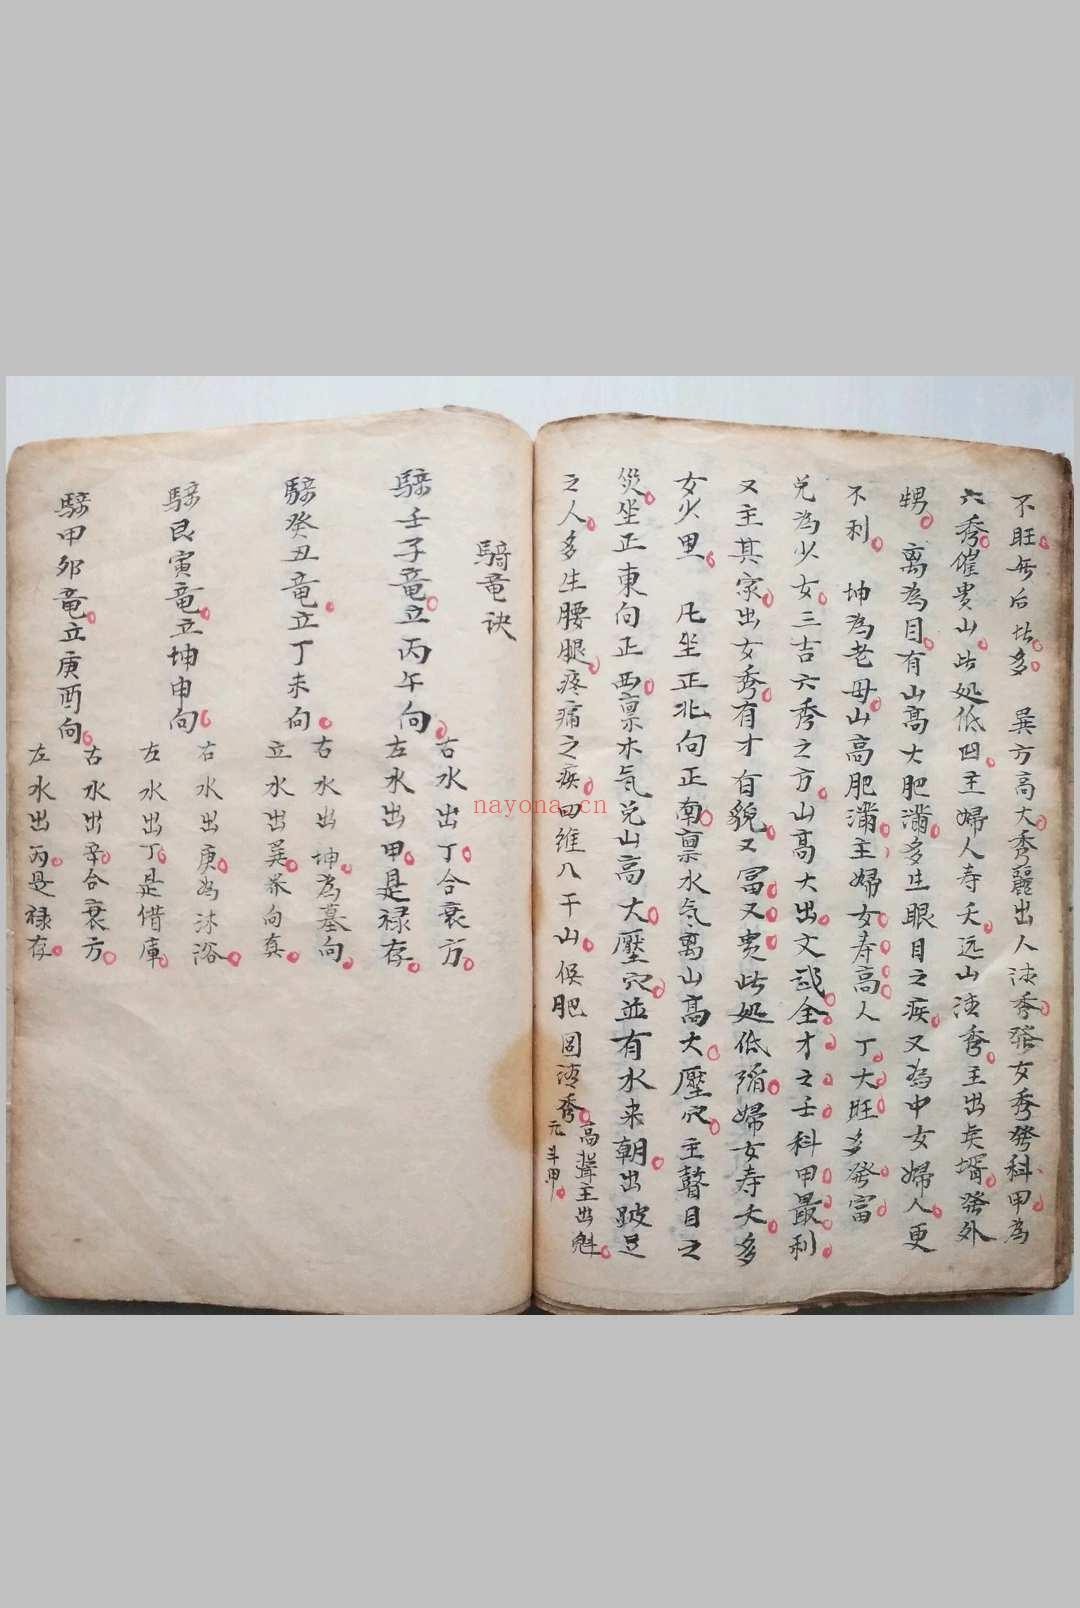 不旺每后坟多 巽方高大秀麗出人清秀發女秀發科甲為
六秀催貴山此処低凹主婦人寿夭远山清秀主出臾壻發外
甥 离為目有山高大肥滿多生眼目之疾又為中女婦人更
不利 坤為老母山高肥滿主婦女寿高人丁大旺多發富
兑為少女三吉六秀之方山高大出文武全才之士科甲最利
又主其家出女秀有才有貌又富又貴此処低陷婦女寿夭多
女少男 凡坐正北向正南禀水氣离山高大壓穴主瞽目之
災坐正東向正西禀木氣兑山高大壓穴並有水来朝出跛足
之人多生腰腿疼痛之疾四維八干山 俟肥圆清秀高聳主出魁
元斗甲
騎竜诀
騎壬子竜立丙午向
右水出丁合衰方
左水出甲是禄存
騎癸丑竜立丁未向
右水出坤為墓向
立水出巽养向真
騎艮寅竜立坤申向
右水出庚為沐浴
左水出丁是借庫
騎甲卯竜立庚酉向
右水出辛合衰方
左水出丙是禄存
nayona.cn